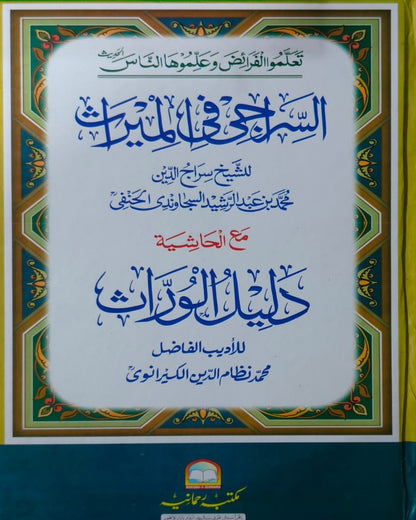 تَعَلَّمُوا الْفَرَائِضَ وَعَلِّمُوْهَا النَّاسَ الحديث
السِّرَاجِيْ فِي الْمِيْرَاث
للشَّيْخ سِرَاجُ الدِّيْن
مُحَمَّد بن عَبد الرَّشِيْد السَّجَاوَنْدِي الحَنَفِي
مَعَ الْحَاشِيَة
دَلِيْلُ الْوُرَّاث
للأديب الفاضل
محمد نظام الدين الكيرانوى
مكتبہ رحمانیہ